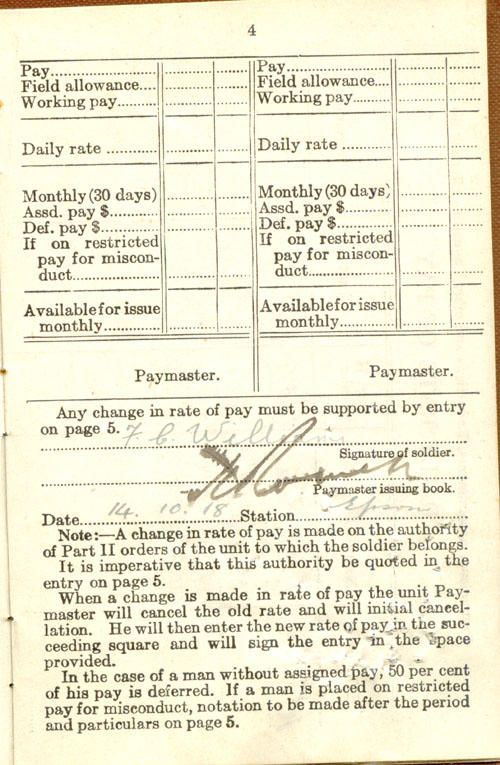 4
Pay
Field allowance
Working pay
Daily rate
Monthly (30 days)
Assd. pay $
Def. pay $
If on restricted
pay for miscon-
duct
Available for issue
monthly
Paymaster.
Pay
Field allowance
Working pay
Daily rate
Monthly (30 days)
Assd. pay $
Def. pay $
If on restricted
pay for miscon-
duct
Available for issue
monthly
Paymaster.
Any change in rate of pay must be supported by entry
on page 5. F. C.
Signature of soldier.
Paymaster issuing book.
Date 14. 10. 18 Station Epsom
Note:—A change in rate of pay is made on the authority
of Part II orders of the unit to which the soldier belongs.
It is imperative that this authority be quoted in the
entry on page 5.
When a change is made in rate of pay the unit Pay-
master will cancel the old rate and will initial cancel-
lation. He will then enter the new rate of pay in the suc-
ceeding square and will sign the entry in the space
provided.
In the case of a man without assigned pay, 50 per cent
of his pay is deferred. If a man is placed on restricted
pay for misconduct, notation to be made after the period
and particulars on page 5.